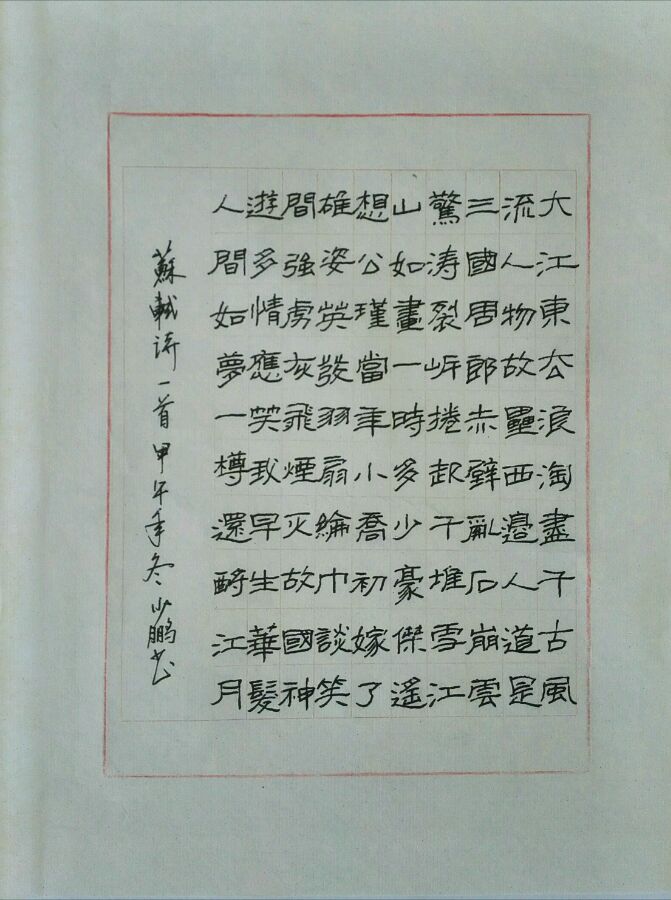 大江東去浪淘盡千古風
流人物故壘西邉人道是
三國周郎赤壁亂石崩雲
驚涛裂岸捲起千堆雪江
山如畫一時多少豪傑遥
想公瑾當年小喬初嫁了
雄姿英發羽扇綸巾談笑
間強虜灰飛煙灭故國神
遊多情應笑我早生華髮
人間如夢一樽還酹江月
蘇軾诗一首甲午年冬小鵬书